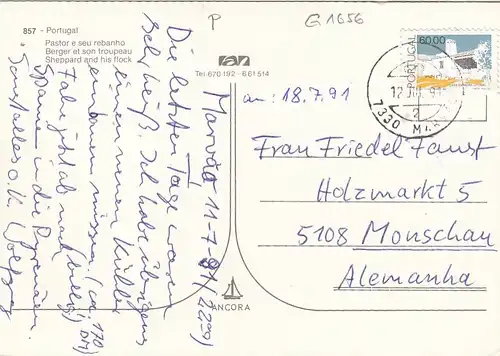 857 - Portugal
Pastor e seu rebanho
Berger et son troupeau
Sheppard and his flock
P
G 1656
Tel. 670 192 - 661 514
PORTUGAL
60.00
7330
2
an: 18.7.91
Frau Friedel Faust
Holzmarkt 5
5108 Monschau
Alemanha
Marvão 11-7-91/22
Die letzten Tage waren
sehr heiß. Ich habe übrigens
einen neuen Kühler
einbauen müssen. (ca. 170
DM)
Fahre jetzt ab nach
Spanien in die Pyrenäen.
Sonst alles o.k.
ANCORA